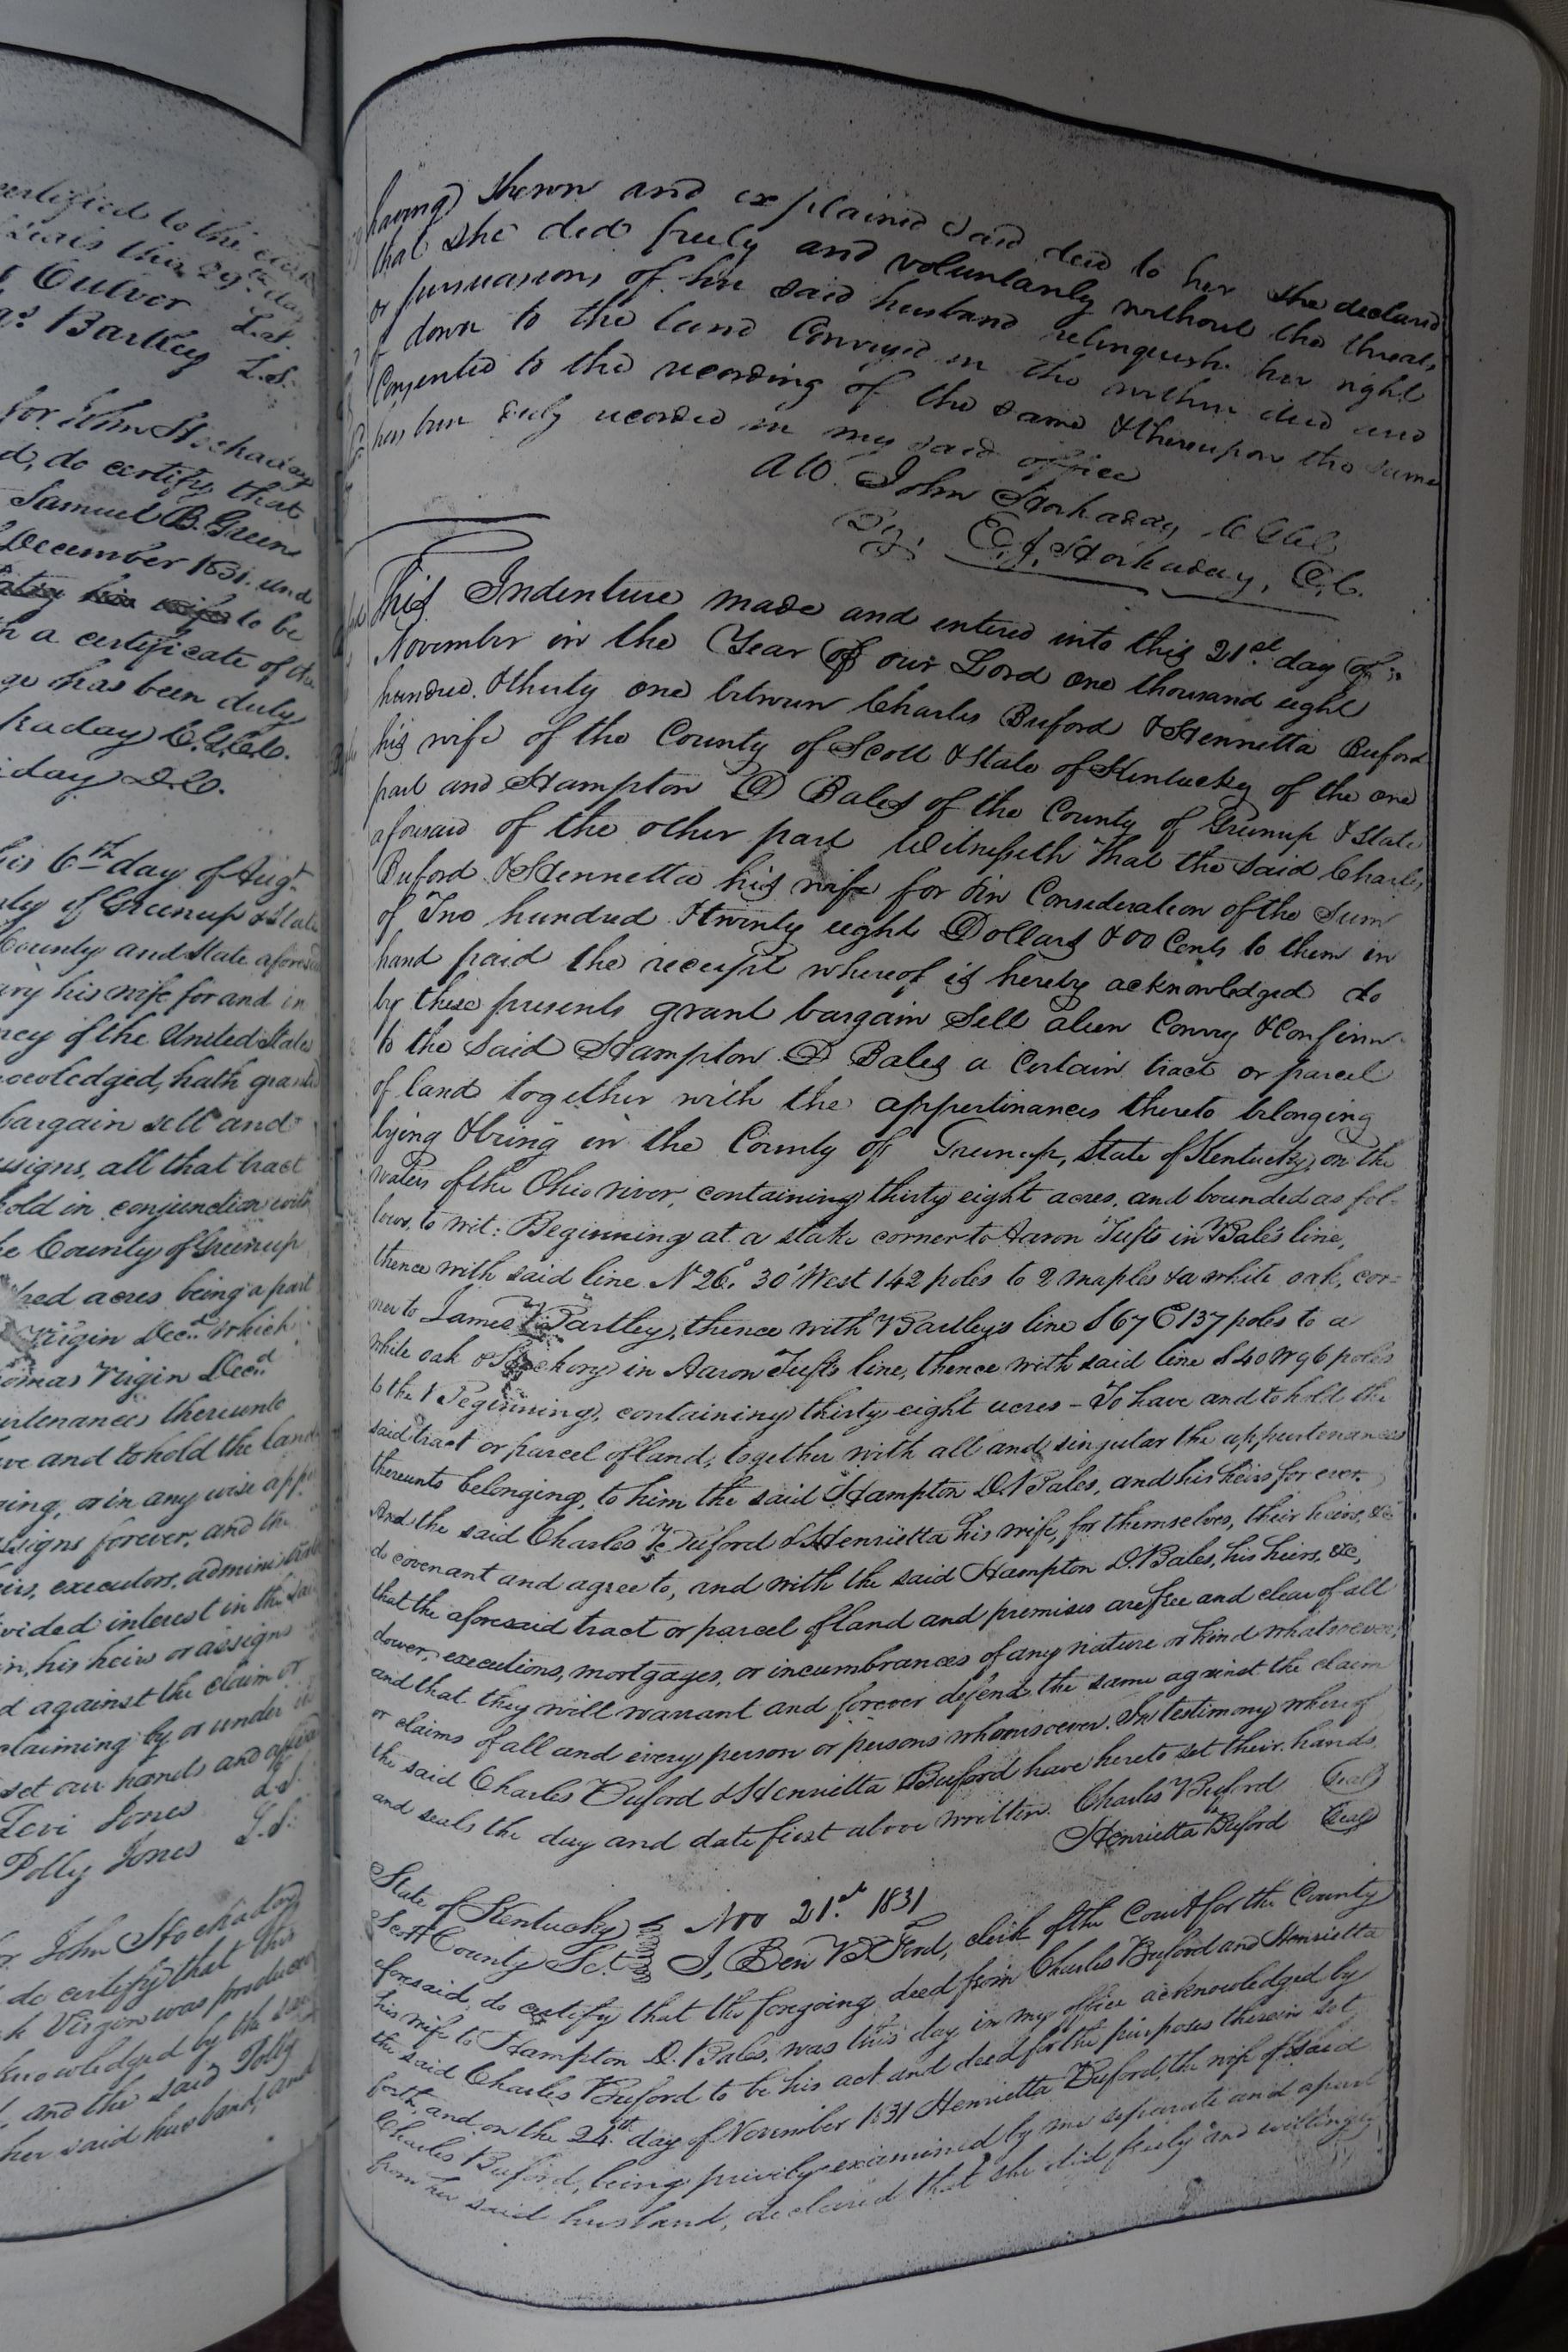 certified to the
Seals this 29th day
Culver L.S.
Bartley L.S.
for John Stockaday
d, do certify that
Samuel B. Green
December 1831. and
his wife to be
h a certificate of the
ge has been duly
kaday C.G.C.C.
day D.C.
his 6th day of Augt
nty of Greenup & State
County and State aforesaid
ary his wife for and in
ncy of the United States
nowledged, hath granted
bargain sell and
ssigns, all that tract
hold in conjunction with
he County of Greenup
red acres being a part
Virgin Decd. which
omas Virgin Decd
urtenances thereunto
ve and to hold the land
ging, or in any wise app
ssigns forever, and the
eirs, executors, administrat
vided interest in the said
in, his heirs or assigns
d against the claim or
claiming by or under
set our hands and affixed
Levi Jones L.S.
Polly Jones L.S.
John Stockaday
do certify that this
h Virgin was produced
knowledged by the said
, and the said Polly
her said husband, and
having shewn and explained said deed to her she declared
that she did freely and voluntarily without the threats,
or persuasions of her said husband relinquish her right
of dower to the land Conveyed in the within deed and
Consented to the recording of the same & thereupon the same
has been duly recorded in my said office
Att. John Stockaday C G C C
By, E. J. Stockaday, D.C.
This Indenture made and entered into this 21st. day of
November in the Year of our Lord one thousand eight
hundred. & thirty one between Charles Buford & Hennretta Buford
his wife of the County of Scott & State of Kentucky of the one
part and Hampton D Bales of the County of Greenup & State
aforesaid of the other part Witnesseth that the said Charles
Buford & Hennretta his wife for & in Consideration of the Sum
of Two hundred & twenty eight Dollars & 00 Cents to them in
hand paid the receipt whereof is hereby acknowledged do
by these presents grant bargain Sell alien Convey & Confirm
to the Said Hampton D Bales a Certain tract or parcel
of land together with the appertinances thereto belonging
lying & being in the County of Greenup, State of Kentucky, on the
waters of the Ohio river, containing thirty eight acres, and bounded as fol-
lows, to wit: Beginning at a stake corner to Aaron Tufts in Bales line,
thence with said line N 26° 30' West 142 poles to 2 maples & a white oak, cor=
ner to James Bartley, thence with Bartley's line S 67 E 137 poles to a
white oak & Hickory in Aaron Tufts line, thence with said line S 40 W 96 poles
to the Beginning, containing thirty eight acres - To have and to hold the
said tract or parcel of land, together with all and singular the appurtenances
thereunto belonging, to him the said Hampton D. Bales, and his heirs for ever.
And the said Charles Buford & Henrietta his wife, for themselves, their heirs, &c
do covenant and agree to, and with the said Hampton D. Bales, his heirs, &c,
that the aforesaid tract or parcel of land and premises are free and clear of all
dower, executions, mortgages, or incumbrances of any nature or kind whatsoever,
and that they will warrant and forever defend the same against the claim
or claims of all and every person or persons whomsoever. In testimony whereof
the said Charles Buford & Henrietta Buford have hereto set their hands
and seals the day and date first above written. Charles Buford (Seal)
Henrietta Buford (Seal)
State of Kentucky Nov 21st 1831
Scott County Sct. I, Ben B Ford, clerk of the Court for the County
aforesaid, do certify that the foregoing deed from Charles Buford and Henrietta
his wife to Hampton D. Bales, was this day in my office acknowledged by
the said Charles Buford to be his act and deed for the purposes therein set
forth, and on the 24th day of November 1831 Henrietta Buford, the wife of said
Charles Buford, being privily examined by me separate and apart
from her said husband, declared that she did freely and willingly